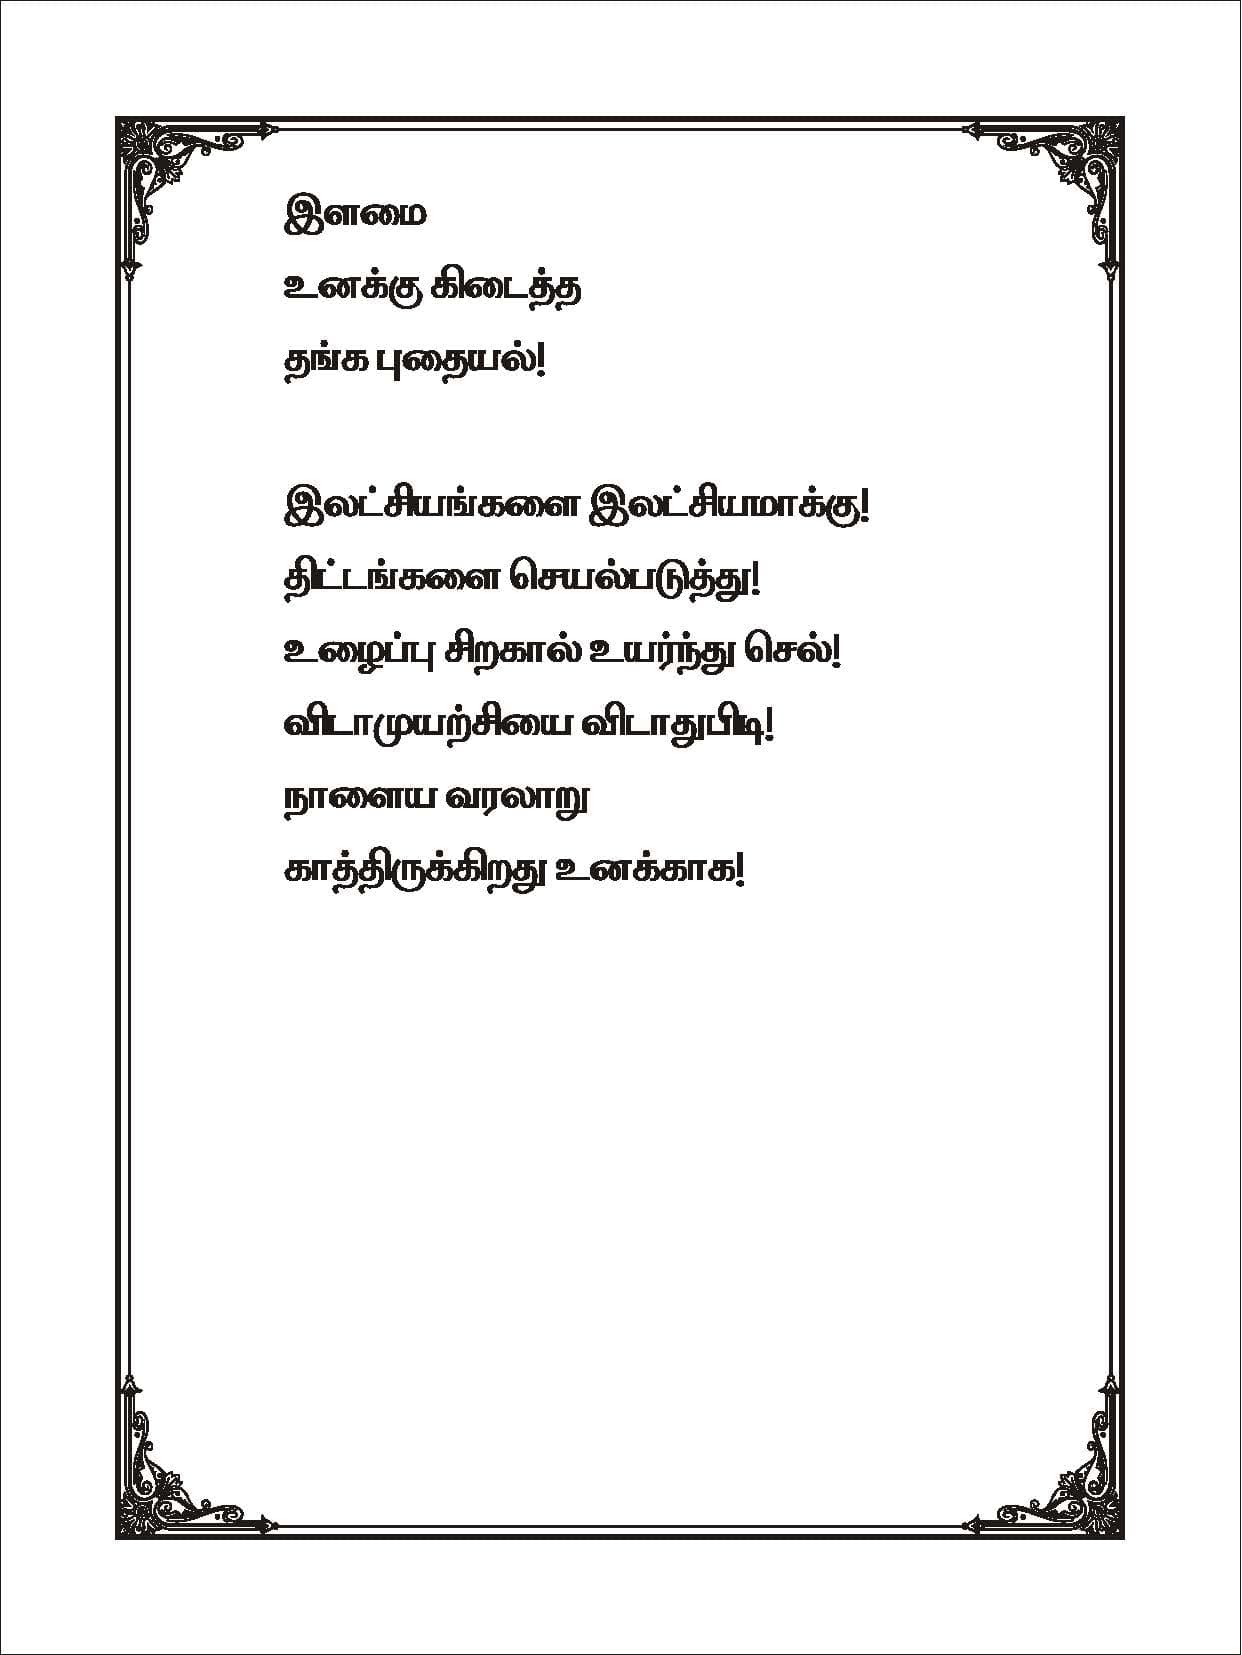 இளமை
உனக்கு கிடைத்த
தங்க புதையல்!
இலட்சியங்களை இலட்சியமாக்கு!
திட்டங்களை செயல்படுத்து!
உழைப்பு சிறகால் உயர்ந்து செல்!
விடாமுயற்சியை விடாதுபிடி!
நாளைய வரலாறு
காத்திருக்கிறது உனக்காக!